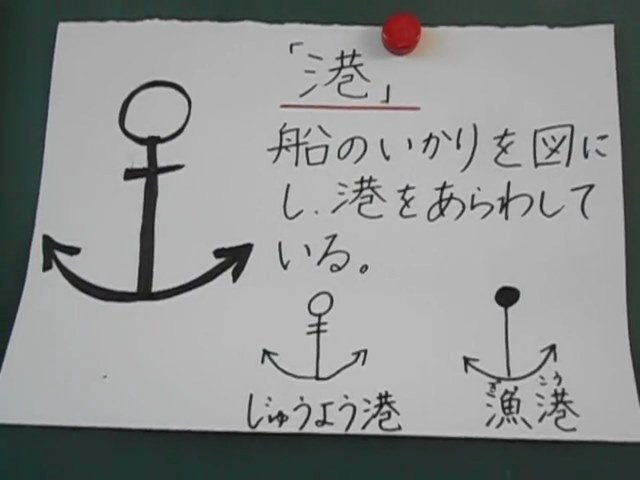 「港」
船のいかりを図に
し、港をあらわして
いる。
じゅうよう港
ぎょこう
漁港